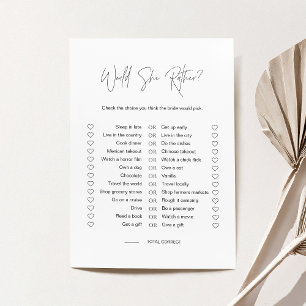 Would She Rather?
Check the choice you think the bride would pick.
Sleep in late OR Get up early
Live in the country OR Live in the city
Cook dinner OR Do the dishes
Mexican takeout OR Chinese takeout
Watch a horror film OR Watch a chick flick
Own a dog OR Own a cat
Chocolate OR Vanilla
Travel the world OR Travel locally
Shop grocery stores OR Shop farmers markets
Go on a cruise OR Rough it camping
Drive OR Be a passenger
Read a book OR Watch a movie
Get a gift OR Give a gift
TOTAL CORRECT